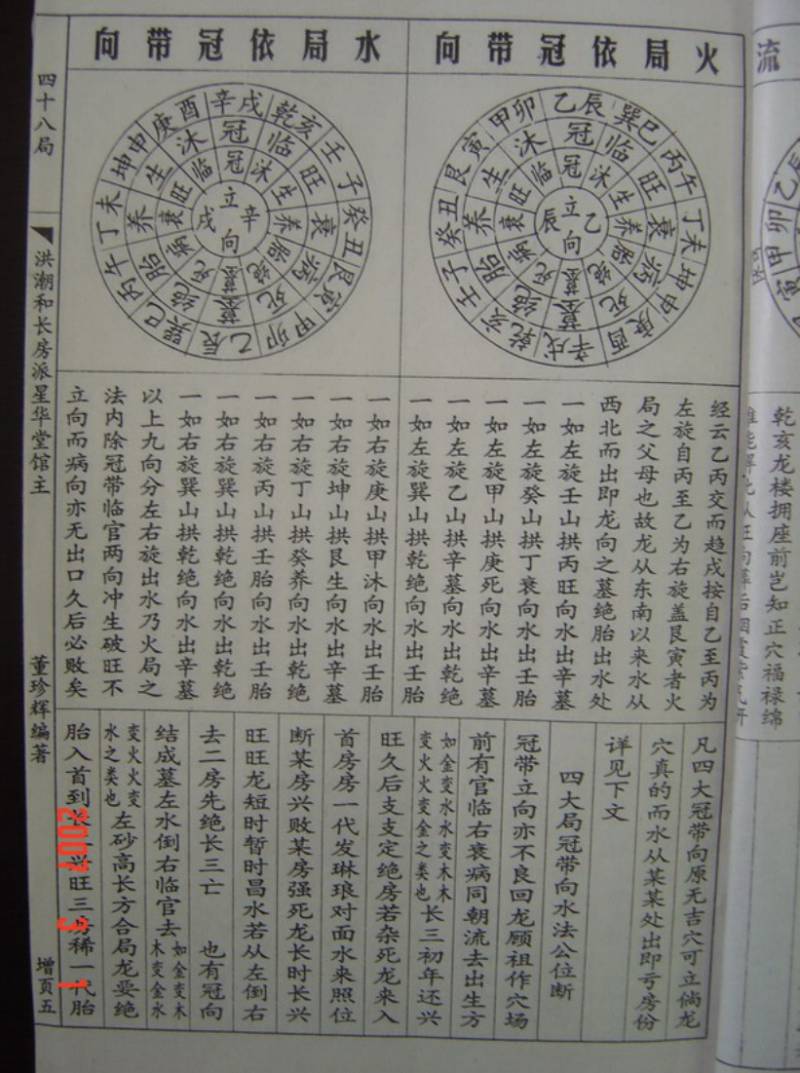 流
火局依冠带向
水局依冠带向
乙辰 巽巳 丙午 丁未 坤申 庚酉 辛戌 乾亥 壬子 癸丑 艮寅 甲卯
冠 临 旺 衰 病 死 墓 绝 胎 养 生 沐
冠 沐 生 养 胎 绝 墓 死 病 衰 旺 临
乙 立向 辰
辛戌 乾亥 壬子 癸丑 艮寅 甲卯 乙辰 巽巳 丙午 丁未 坤申 庚酉
冠 临 旺 衰 病 死 墓 绝 胎 养 生 沐
冠 沐 生 养 胎 绝 墓 死 病 衰 旺 临
辛 立向 戌
乾亥龙楼拥座前岂知正穴福禄绵
经云乙丙交而趋戌按自乙至丙为
左旋自丙至乙为右旋盖艮寅者火
局之父母也故龙从东南以来水从
西北而出即龙向之墓绝胎出水处
一如左旋壬山拱丙旺向水出辛墓
一如左旋癸山拱丁衰向水出壬胎
一如左旋甲山拱庚死向水出辛墓
一如左旋乙山拱辛墓向水出乾绝
一如左旋巽山拱乾绝向水出壬胎
一如右旋庚山拱甲沐向水出壬胎
一如右旋坤山拱艮生向水出辛墓
一如右旋丁山拱癸养向水出乾绝
一如右旋丙山拱壬胎向水出壬胎
一如右旋巽山拱乾绝向水出乾绝
一如右旋巽山拱乾绝向水出辛墓
以上九向分左右旋出水乃火局之
法内除冠带临官两向冲生破旺不
立向而病向亦无出口久后必败矣
凡四大冠带向原无吉穴可立倘龙
穴真的而水从某某处出即亏房份
详见下文
四大局冠带向水法公位断
冠带立向亦不良回龙顾祖作穴场
前有官临右衰病同朝流去出生方
如金变水水变木木
变火火变金之类也
长三初年还兴
旺久后支支定绝房若杂死龙来入
首房房一代发琳琅对面水来照位
断某房兴败某房强死龙长时长兴
旺旺龙短时暂时昌水若从左倒右
去二房先绝长三亡 也有冠向
结成墓左水倒右临官去
如金变木
木变金水
变火火变
水之类也
左砂高长方合局龙要绝
胎入首到长 兴旺三房稀一代胎
四十八局
洪潮和长房派星华堂馆主
董珍辉编著
增页五
2007 3 1